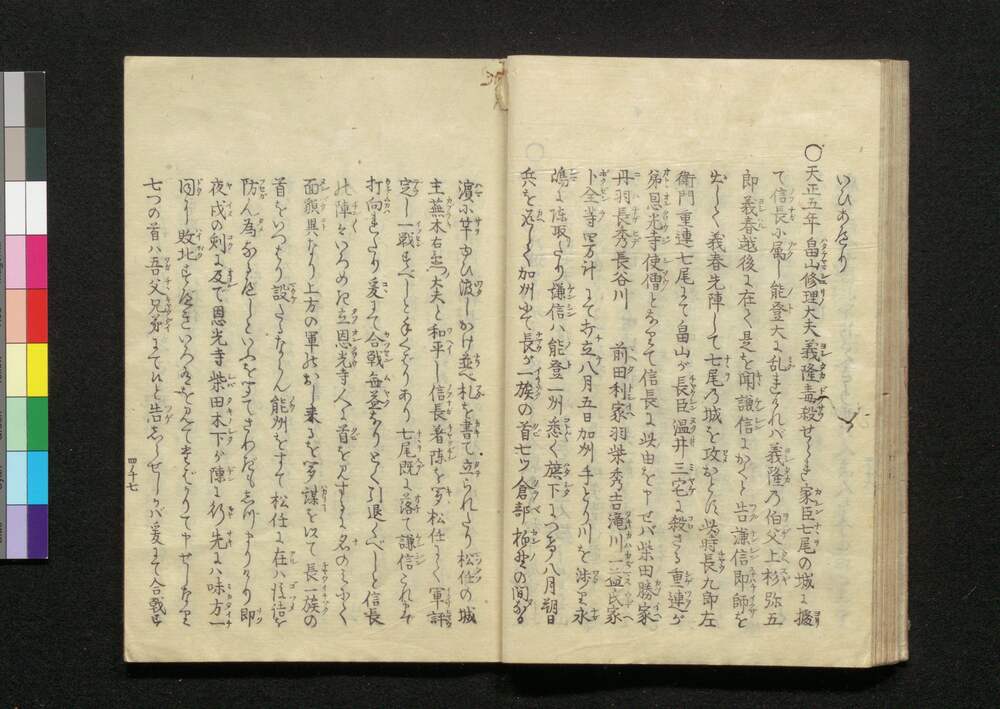 いひあへり
○天正五年畠山修理大夫義隆毒殺せられ家臣七尾の城に據
て信長に属し能登大に乱れけれバ義隆乃伯父上杉弥五
郎義春越後に在て是を聞謙信にかくと告謙信即師を
出して義春先陣して七尾乃城を攻おとす此時長九郎左
衛門重連七尾にて畠山が長臣温井三宅に殺さる重連が
弟恩光寺使僧となりて信長に此由を申せバ柴田勝家
丹羽長秀長谷川　前田利家羽柴秀吉滝川一益氏家
卜全等四万計にて打立八月五日加州手とり川を渉り水
嶋に陣取たり謙信ハ能登一州悉く旗下につき八月朔日
兵を返して加州に出て長が一族の首七ツ倉部 の間
濱に竿ゆひ渡しかけ並べ札を書て立られたり松任の城
主蕪木右衛門大夫と和平し信長着陣を聞松任にて軍評
定し一戦すべしと手くばりあり七尾既に落て謙信これまで
打向れたり爰にて合戦無益なりとく引退くべしと信長
の陣をいろめき立恩光寺人々首を見するに名のミにて
面貌異なり上方の軍のおし来るを聞謀を以て長一族の
首をいつはり設たるならん能州をすて松任に在ハ後詰を
防ん為なるべしといふを聞てさわぎも 即
夜戌の刻に及で恩光寺柴田木下が陣に行先に味方一
同に敗北すべきいろを見て申せしなり
七つの首ハ吾父兄弟にて候と告しらせしかバ爰にて合戦
四ノ十七